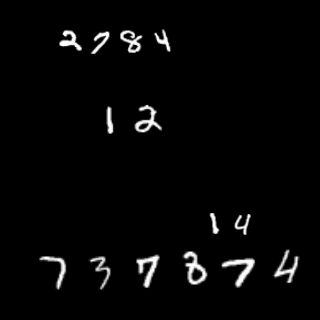 2784
12
14
737874